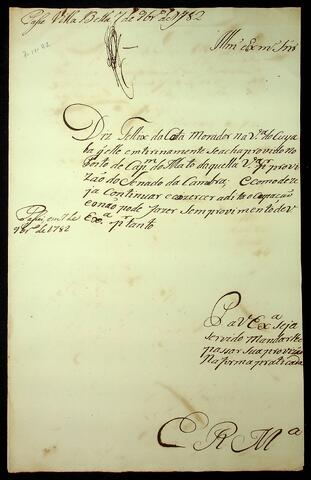 Passe Villa Bella 7 de 9br.o de 1782
Illm.o e Exm.o Snr
Diz Felix da Costa Morador na V.a do Cuya
ba q elle enterinamente se acha provido no
Posto de Cap.m do Mato daquella V.a p provi
zão do Senado da Camara; e como deze
ja Continuar e exercer a dita ocupação
e o não pode fazer sem provimento de V
Ex.a p.tanto
Passe, em 7 de
9br.o de 1782
P a V Ex.a Seja
servido Mandarlhe
passar Sua provizão
Na forma praticada
E R M.ce